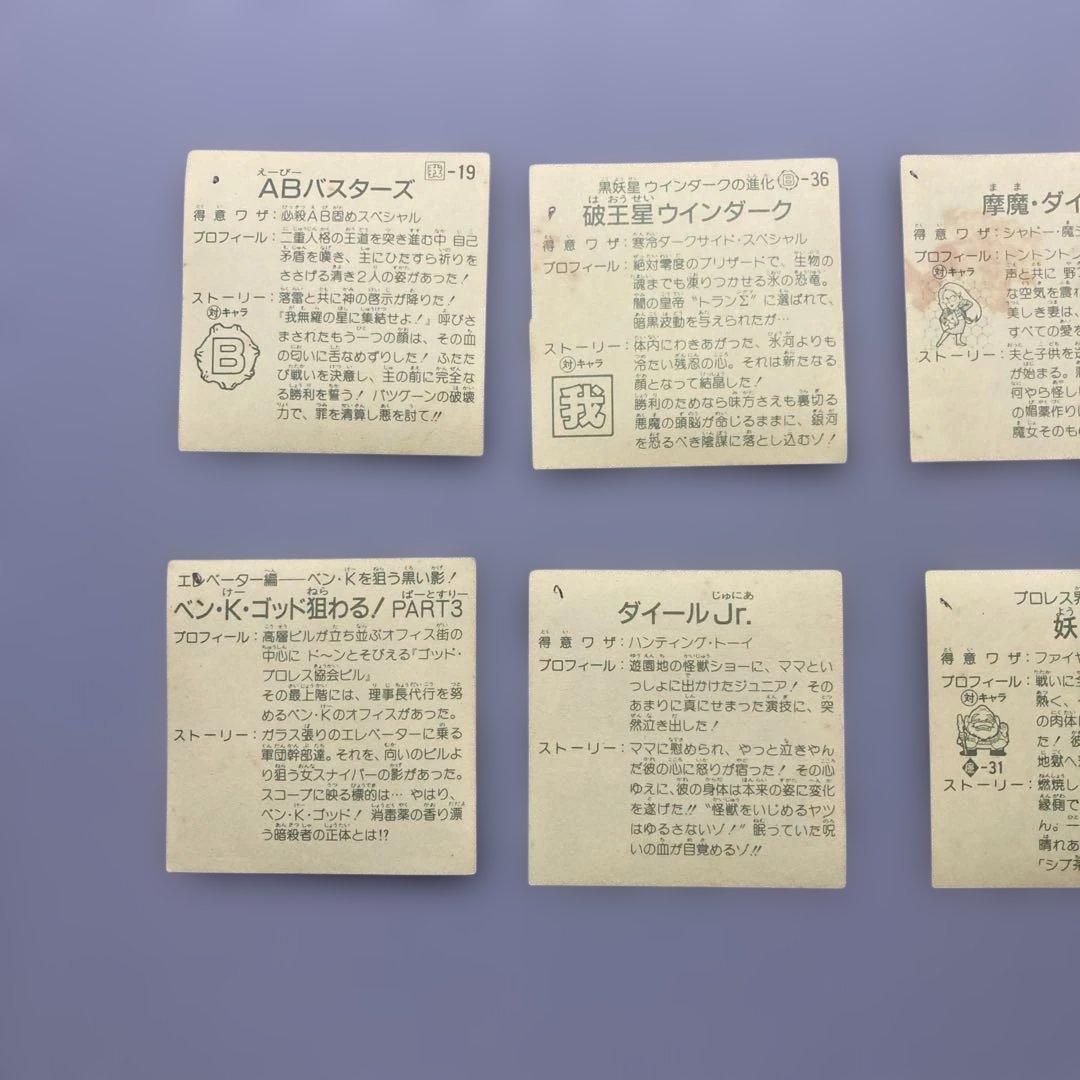 ABバスターズ 我-19
えーびー
得意ワザ：必殺AB固めスペシャル
プロフィール：二重人格の王道を突き進む中 自己
矛盾を嘆き、主にひたすら祈りを
ささげる清き2人の姿があった！
ストーリー：落雷と共に神の啓示が降りた！
対キャラ
『我無羅の星に集結せよ！』呼びさ
まされたもう一つの顔は、その血
の匂いに舌なめずりした！ ふたた
び戦いを決意し、主の前に完全な
る勝利を誓う！ バツゲーンの破壊
力で、罪を清算し悪を討て!!
B
黒妖星 ウインダークの進化 B-36
破王星ウインダーク
はおうせい
得意ワザ：寒冷ダークサイド・スペシャル
プロフィール：絶対零度のブリザードで、生物の
魂までも凍りつかせる氷の恐竜。
闇の皇帝“トランΣ”に選ばれて、
暗黒波動を与えられたが…
ストーリー：体内にわきあがった、氷河よりも
対キャラ
冷たい残忍の心。それは新たなる
顔となって結晶した！
勝利のためなら味方さえも裏切る
悪魔の頭脳が命じるままに、銀河
を恐るべき陰謀に落とし込むゾ！
我
摩魔・ダイ
まま
得意ワザ：シャドー・魔
プロフィール：トントントン
対キャラ
声と共に 野
な空気を震わ
美しき妻は、
すべての愛を
ストーリー：夫と子供を
が始まる。
何やら怪し
の媚薬作り
魔女そのもの
エレベーター編――ベン・Kを狙う黒い影！
ベン・K・ゴッド狙わる！PART3
けー ねら ぱーとすりー
プロフィール：高層ビルが立ち並ぶオフィス街の
中心に ド〜ンとそびえる『ゴッド・
プロレス協会ビル』
その最上階には、理事長代行を努
めるベン・Kのオフィスがあった。
ストーリー：ガラス張りのエレベーターに乗る
軍団幹部達。それを、向いのビルよ
り狙う女スナイパーの影があった。
スコープに映る標的は… やはり、
ベン・K・ゴッド！ 消毒薬の香り漂
う暗殺者の正体とは!?
ダイールJr.
じゅにあ
得意ワザ：ハンティング・トーイ
プロフィール：遊園地の怪獣ショーに、ママとい
っしょに出かけたジュニア！ その
あまりに真にせまった演技に、突
然泣き出した！
ストーリー：ママに慰められ、やっと泣きやん
だ彼の心に怒りが宿った！ その心
ゆえに、彼の身体は本来の姿に変化
を遂げた!! “怪獣をいじめるヤツ
はゆるさないゾ！” 眠っていた呪
いの血が目覚めるゾ!!
プロレス界
妖
よう
得意ワザ：ファイヤ
プロフィール：戦いに全
対キャラ
熱く、
の肉体
た！ 彼
地獄へ
-31
ストーリー：燃焼し
縁側で
ん。一
晴れあ
「シブ茶